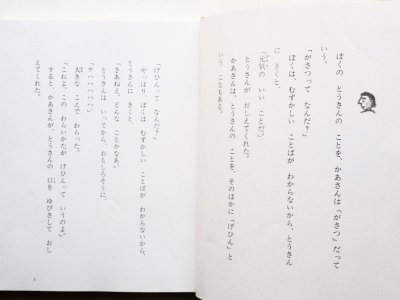 ぼくの とうさんの ことを、かあさんは「がさつ」だって
いう。
「がさつって なんだ?」
ぼくは、むずかしい ことばが わからないから、とうさん
に きくと、
「元気の いい ことだ」
とうさんが おしえてくれた。
かあさんは、とうさんの ことを、そのほかに「げひん」と
いう こともある。
「げひんって なんだ?」
やっぱり、ぼくは むずかしい ことばが わからないから、
とうさんに きくと、
「さあねえ、どんな ことかなあ」
とうさんは いってから、おもしろそうに、
「ゲハハハハハ」
大きな こえで わらった。
「これよ、この わらいかたが げひんって いうのよ」
すると、かあさんが、とうさんの 口を ゆびさして おし
えてくれた。